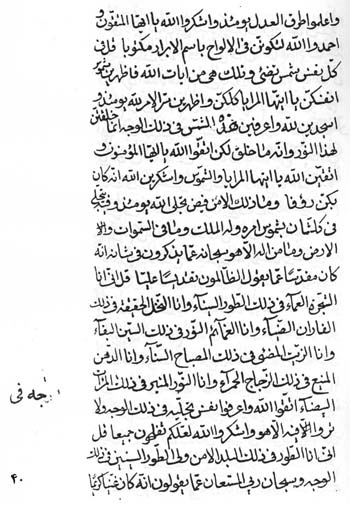 واعلموا طرف العدل يومئذ واشكروا الله يا ايها المتقون و
احمدوا الله لتكونن في الالواح باسم الابرار مكتوبا قل في
كل نفس شمس تضئ و ذلك هي من ايات الله فاظهرن شموس
انفسكن يا ايتها المرايا كلكن واظهرن من الامر لله يومئذ و
اسجدن لله واعرفن الشمس في ذلك الوجه انما خلقتن
لهذا النور وانه ما خلق لكن اتقوا الله يا ايها المؤمنون
اتقين الله يا ايتها المرايا والشموس واشكرن الله انه كان
بكن رؤفا وما ذلك الا من فيض تجلى الله يومئذ وقد تجلى
في كلشئان بشموس امره وله الملك وما في السموات والا
الارض وما من اله الا هو سبحانه عما يذكرون في شانه انه
كان مقدسا عما يقول الظالمون تقديسا عليا قل اني انا
الشجرة العماء في ذلك الطور السيناء وانا النخل الحقيقة في ذلك
الفاران الضياء وانا النور في ذلك السين البقاء
وانا الزيت المضئ في ذلك المصباح السناء وانا الدهن
المنبع في ذلك الزجاج الحمراء وانا النور المنير في ذلك المرات
البيضاء اتقوا الله واعرفوا نفس تجليه في ذلك الوجه ولا
تروا الا اله الا هو واشكروا الله لعلكم تفلحون جميعا قل
اني انا الطور في ذلك البلد الامن وفي الطور السينين في ذلك
الوجه وسبحان ربي المستعان عما يقولون انه كان غنيا كريما
جه في
۴۰